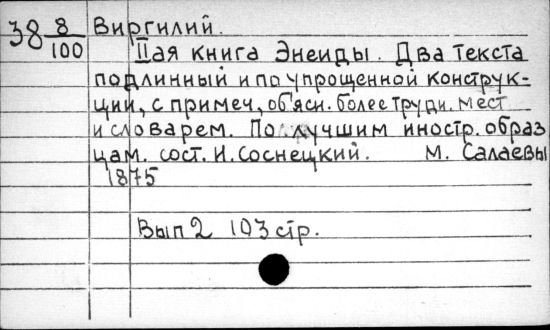 38 8/100 Виргилий.
IIая книга Энеиды. Два текста
подлинный и по упрощенной конструк-
ции, с примеч, объясн. более трудн. мест
и словарем. По лучшим иностр. образ
цам. сост. И. Соснецкий. М. Салаевы
1875
Вып 2 103 стр.